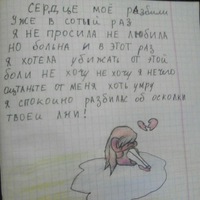 СЕРДЦЕ МОЁ РАЗБИЛИ
УЖЕ В СОТЫЙ РАЗ
Я НЕ ПРОСИЛА НЕ ЛЮБИЛА
НО БОЛЬНА И В ЭТОТ РАЗ
Я ХОТЕЛА УБЕЖАТЬ ОТ ЭТОЙ
БОЛИ НЕ ХОЧУ НЕ ХОЧУ Я НЕЧЕГО
ОТСТАНЬТЕ ОТ МЕНЯ ХОТЬ УМРУ
Я СПОКОЙНО РАЗБИЛАСЬ ОБ ОСКОЛКИ
ТВОЕЙ ЛЖИ!